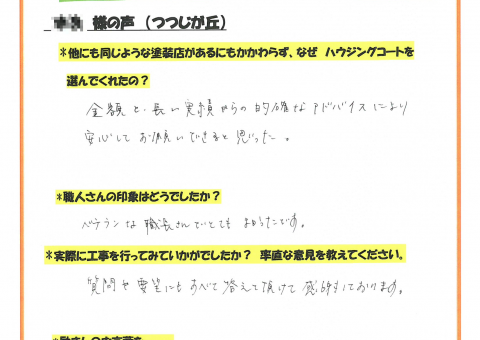 様の声（つつじが丘）
*他にも同じような塗装店があるにもかかわらず、なぜ ハウジングコートを
選んでくれたの？
金額と、長い実績からの的確なアドバイスにより
安心してお願いできると思った。
*職人さんの印象はどうでしたか？
ベテランな職長さんでとても
です。
*実際に工事を行ってみていかがでしたか？ 率直な意見を教えてください。
質問や要望にもすべて答えて頂けて感謝しております。